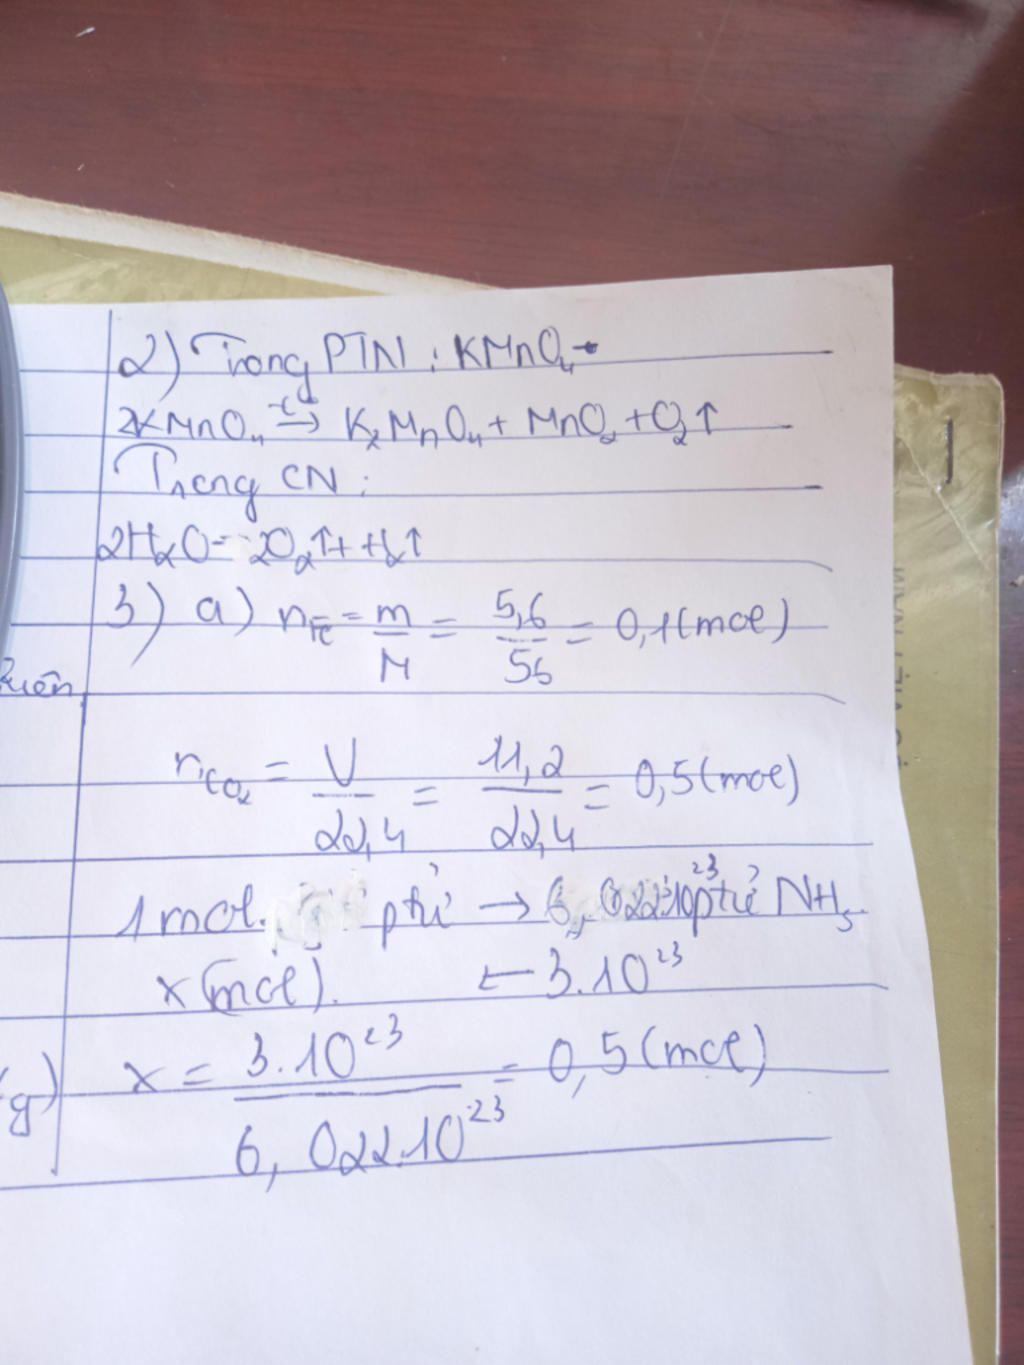 2) Trong PTN : KMnO₄
2KMnO₄ →(t°) K₂MnO₄ + MnO₂ + O₂↑
Trong CN :
2H₂O = 2O₂↑ + H₂↑
3) a) n_Fe = m/M = 5,6/56 = 0,1 (mol)
n_CO₂ = V/22,4 = 11,2/22,4 = 0,5 (mol)
1 mol. ptử → 6,022.10²³ ptử NH₃.
x (mol). ← 3.10²³
x = 3.10²³/6,022.10²³ = 0,5 (mol)
g)